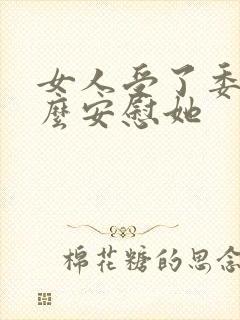 女人受了委
麼安慰她
棉花糖的思念